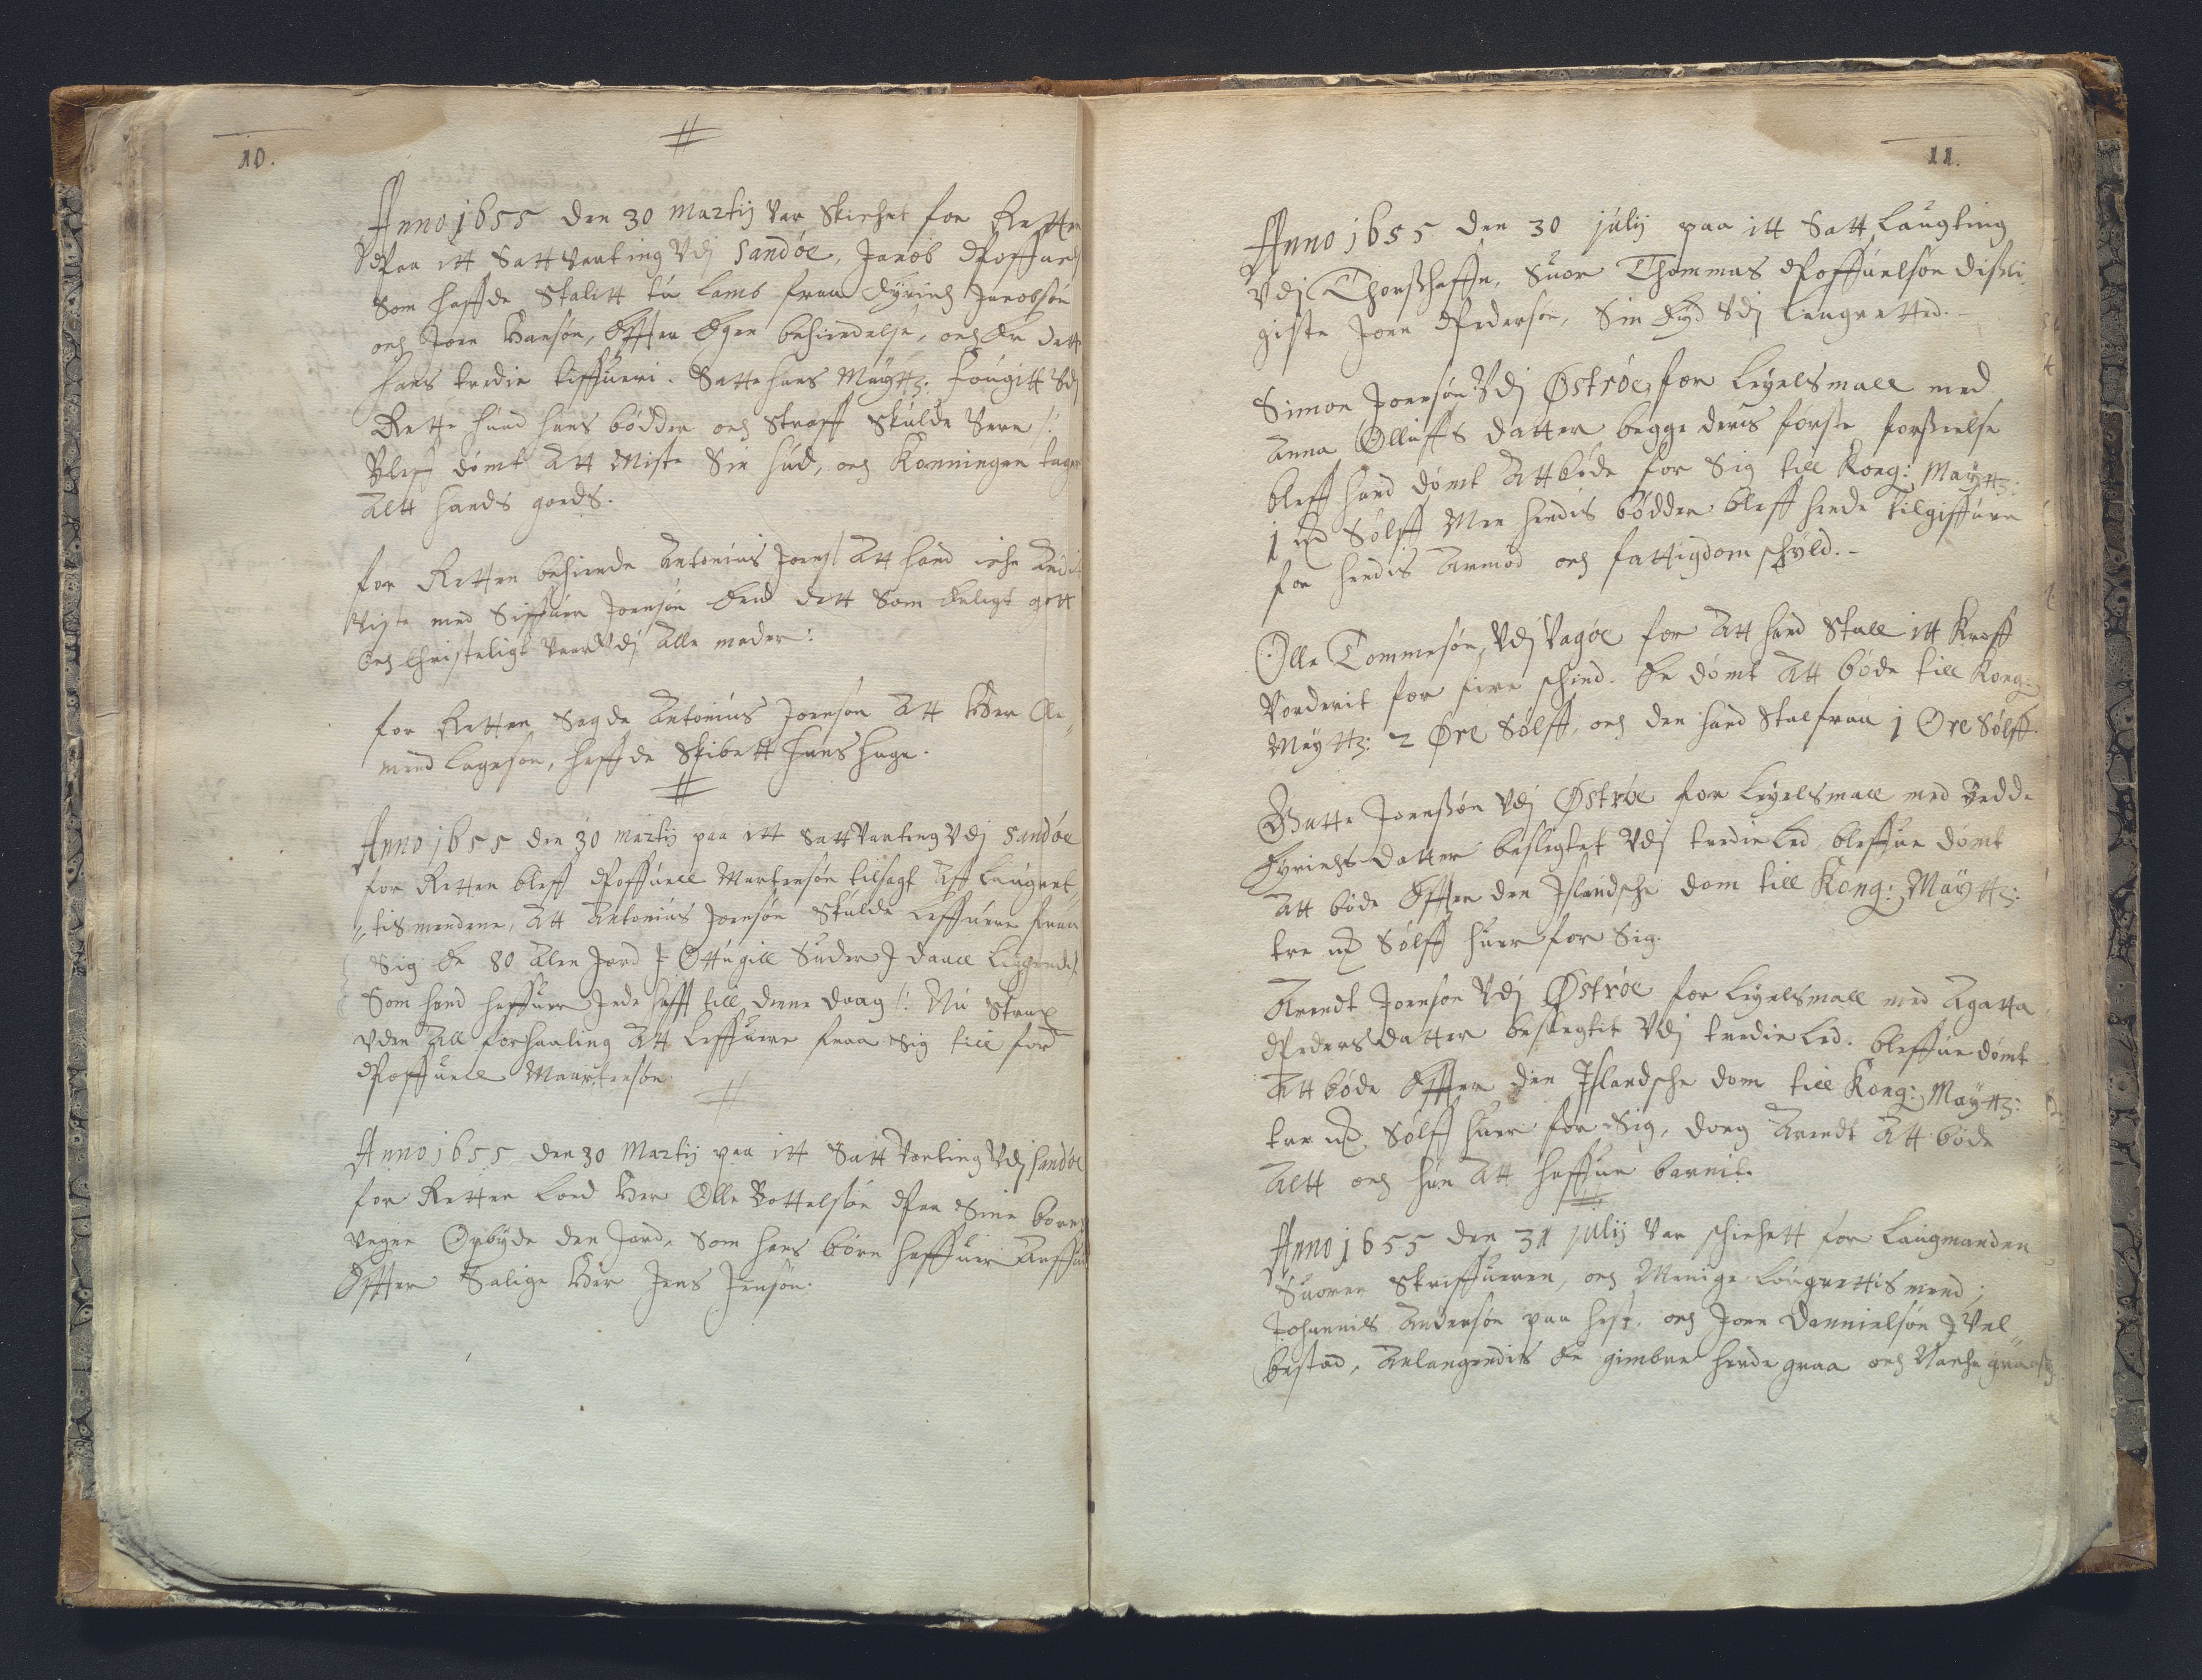 10.
Anno 1655 den 30 Martij var Skiehet for Retten
Paa itt Satt Vaarting Vdj Sandøe, Jacob Poffuels
Som haffde Stalitt tu lamb fraa Øyrich Jacobsøn
och Joen Hansøn, Effter Egen bekiendelse, och Er dett
hans tredie tiffueri. Satte hans Maÿttz: Fougitt Vdj
Rette huad hans bødder och Straff Skulde Vere /:
Bleff dømt Att Miste Sin hud, och Konningen tage
Altt hands goeds.
for Retten bekiende Antonius Joens: Att hand iche Andit
Viste med Siffuer Joensøn End dett Som Erligt gott
Och Christeligt Vaar Vdj Alle mader:
for Retten Sagde Antonius Joensøn Att Her Cle-
mend Lagesøn, haffde Skibett hans hage.
Anno 1655 den 30 Martij paa itt Satt Vaarting Vdj Sandøe
for Retten bleff Poffuell Mortensøn tilsagt Aff Laugret-
-tis mendene, Att Antonius Joensøn Skulde Leffuere fraa
Sig de 80 Alen Jord J Ottugill Suder J Daall Liggendes
Som hand haffuer Jede hafft till denne Daag /: Nu Strax
vden All forhaaling Att Leffuere fraa Sig till ford
Poffuell Maartensøn
Anno 1655 den 30 Martij paa itt Satt Vaarting Vdj Sandøe
for Retten loed Her Olle Bottelsøn Paa Sine børns
vegne Opbyde den Jord, Som hans børn haffuer Arffuit
Effter Salige Her Jens Jensøn.
11.
Anno 1655 den 30 julij paa itt Satt Laugting
Vdj Thorshaffn, Suor Thommas Poffuelsøn disli-
giste Joen Pedersøn, Sin Eyd Vdj Laugretted.-
Simon Joensøn Vdj Østrøe, for Leyelsmaall med
Anna Olluffs datter begge deris første forseelse
bleff hand dømt Att bøde for Sig till Kong: Maÿttz:
1 mk Sølff Men hendis bødder bleff hende tilgiffuen
for hendis Armod och fattigdom schyld.-
Olle Tommesøn, Vdj Vagøe for Att hand Stall itt Kroff
Vorderit for fire schind. Er dømt Att bøde till Kong:
Maÿttz: 2 Øre Sølff, och den hand Stal fraa 1 Øre Sølff.
Gutte Joenssøn Vdj Østrøe for Leyelsmaall med Edde
Eyrichs datter beslegtet Vdj tredie Led bleffue dømt
Att bøde Effter den Jslandsche dom till Kong: Maÿttz:
tre mk Sølff huer for Sig.
Arendt Joensøn Vdj Østrøe for Leyelsmaall med Agatta
Peders datter beslegtit Vdj tredie Led. bleffue dømt
Att bøde Effter den Jslandsche dom till Kong: Maÿttz:
tre mk Sølff huer for Sig, dog Arendt Att bøde
Altt och hun Att haffue barnit.
Anno 1655 den 31 julij Var schiehett for Laugmanden
Suoren Skriffueren, och Menige Lougrettis mend;
Johannis Andersøn paa hest. och Joen Dannielsøn J Vel-
bestad, Anlangendis de gimbre herde graa och